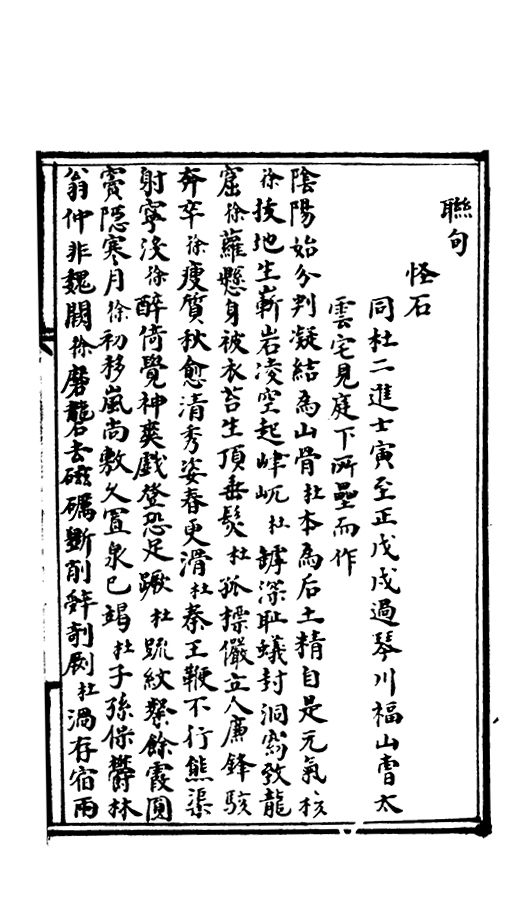 聯句
怪石
同杜二進士寅至正戊戌過琴川福山曹太
雲宅見庭下所壘而作
陰陽始分判凝結為山骨杜本為后土精自是元氣核
徐拔地生嶄岩凌空起峍屼杜罅深耻蟻封洞窈致龍
窟徐蘿懸身被衣苔生頂垂髮杜孤撐儼立人廉鋒駭
奔卒徐瘦質秋愈清秀姿春更滑杜秦王鞭不行熊渠
射寧沒徐醉倚覺神爽戲登恐足蹶杜䟽紋粲餘霞圓
竇隱寒月徐初移嵐尚敷久置泉已竭杜子孫保欝林
翁仲非魏闕徐磨礲去磁礪斲削辭剞劂杜渦存宿雨